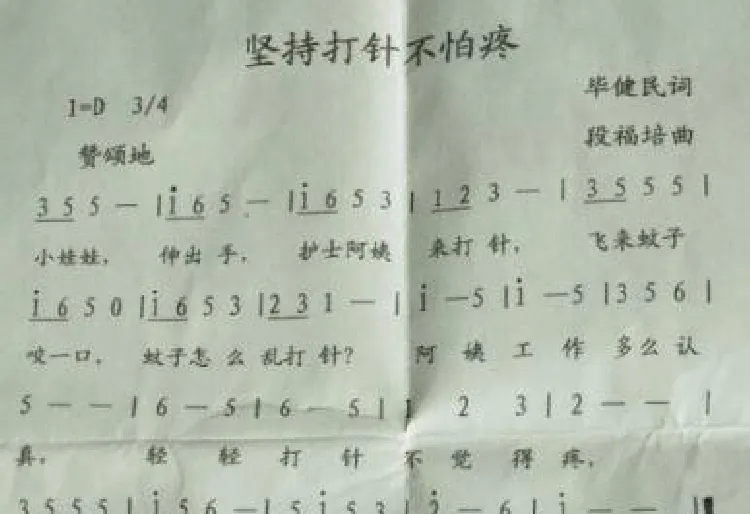 坚持打针不怕疼
1=D 3/4
毕健民词
赞颂地
段福培曲
3 5 5 — | i 6 5 — | i 6 5 3 | 1 2 3 — | 3 5 5 5 |
小娃娃, 伸出手, 护士阿姨 来打针, 飞来蚊子
i 6 5 0 | i 6 5 3 | 2 3 1 — | i — 5 | i — 5 | 3 5 6 |
咬一口, 蚊子怎么乱打针? 阿姨工作多么认
5 — — | 6 — 5 | 6 — 5 | 2 3 | 2 — — |
真, 轻轻打针不觉得疼,
3 5 5 5 | i 5 6 — | 5 i 5 3 | 2 — 6 | i — — |